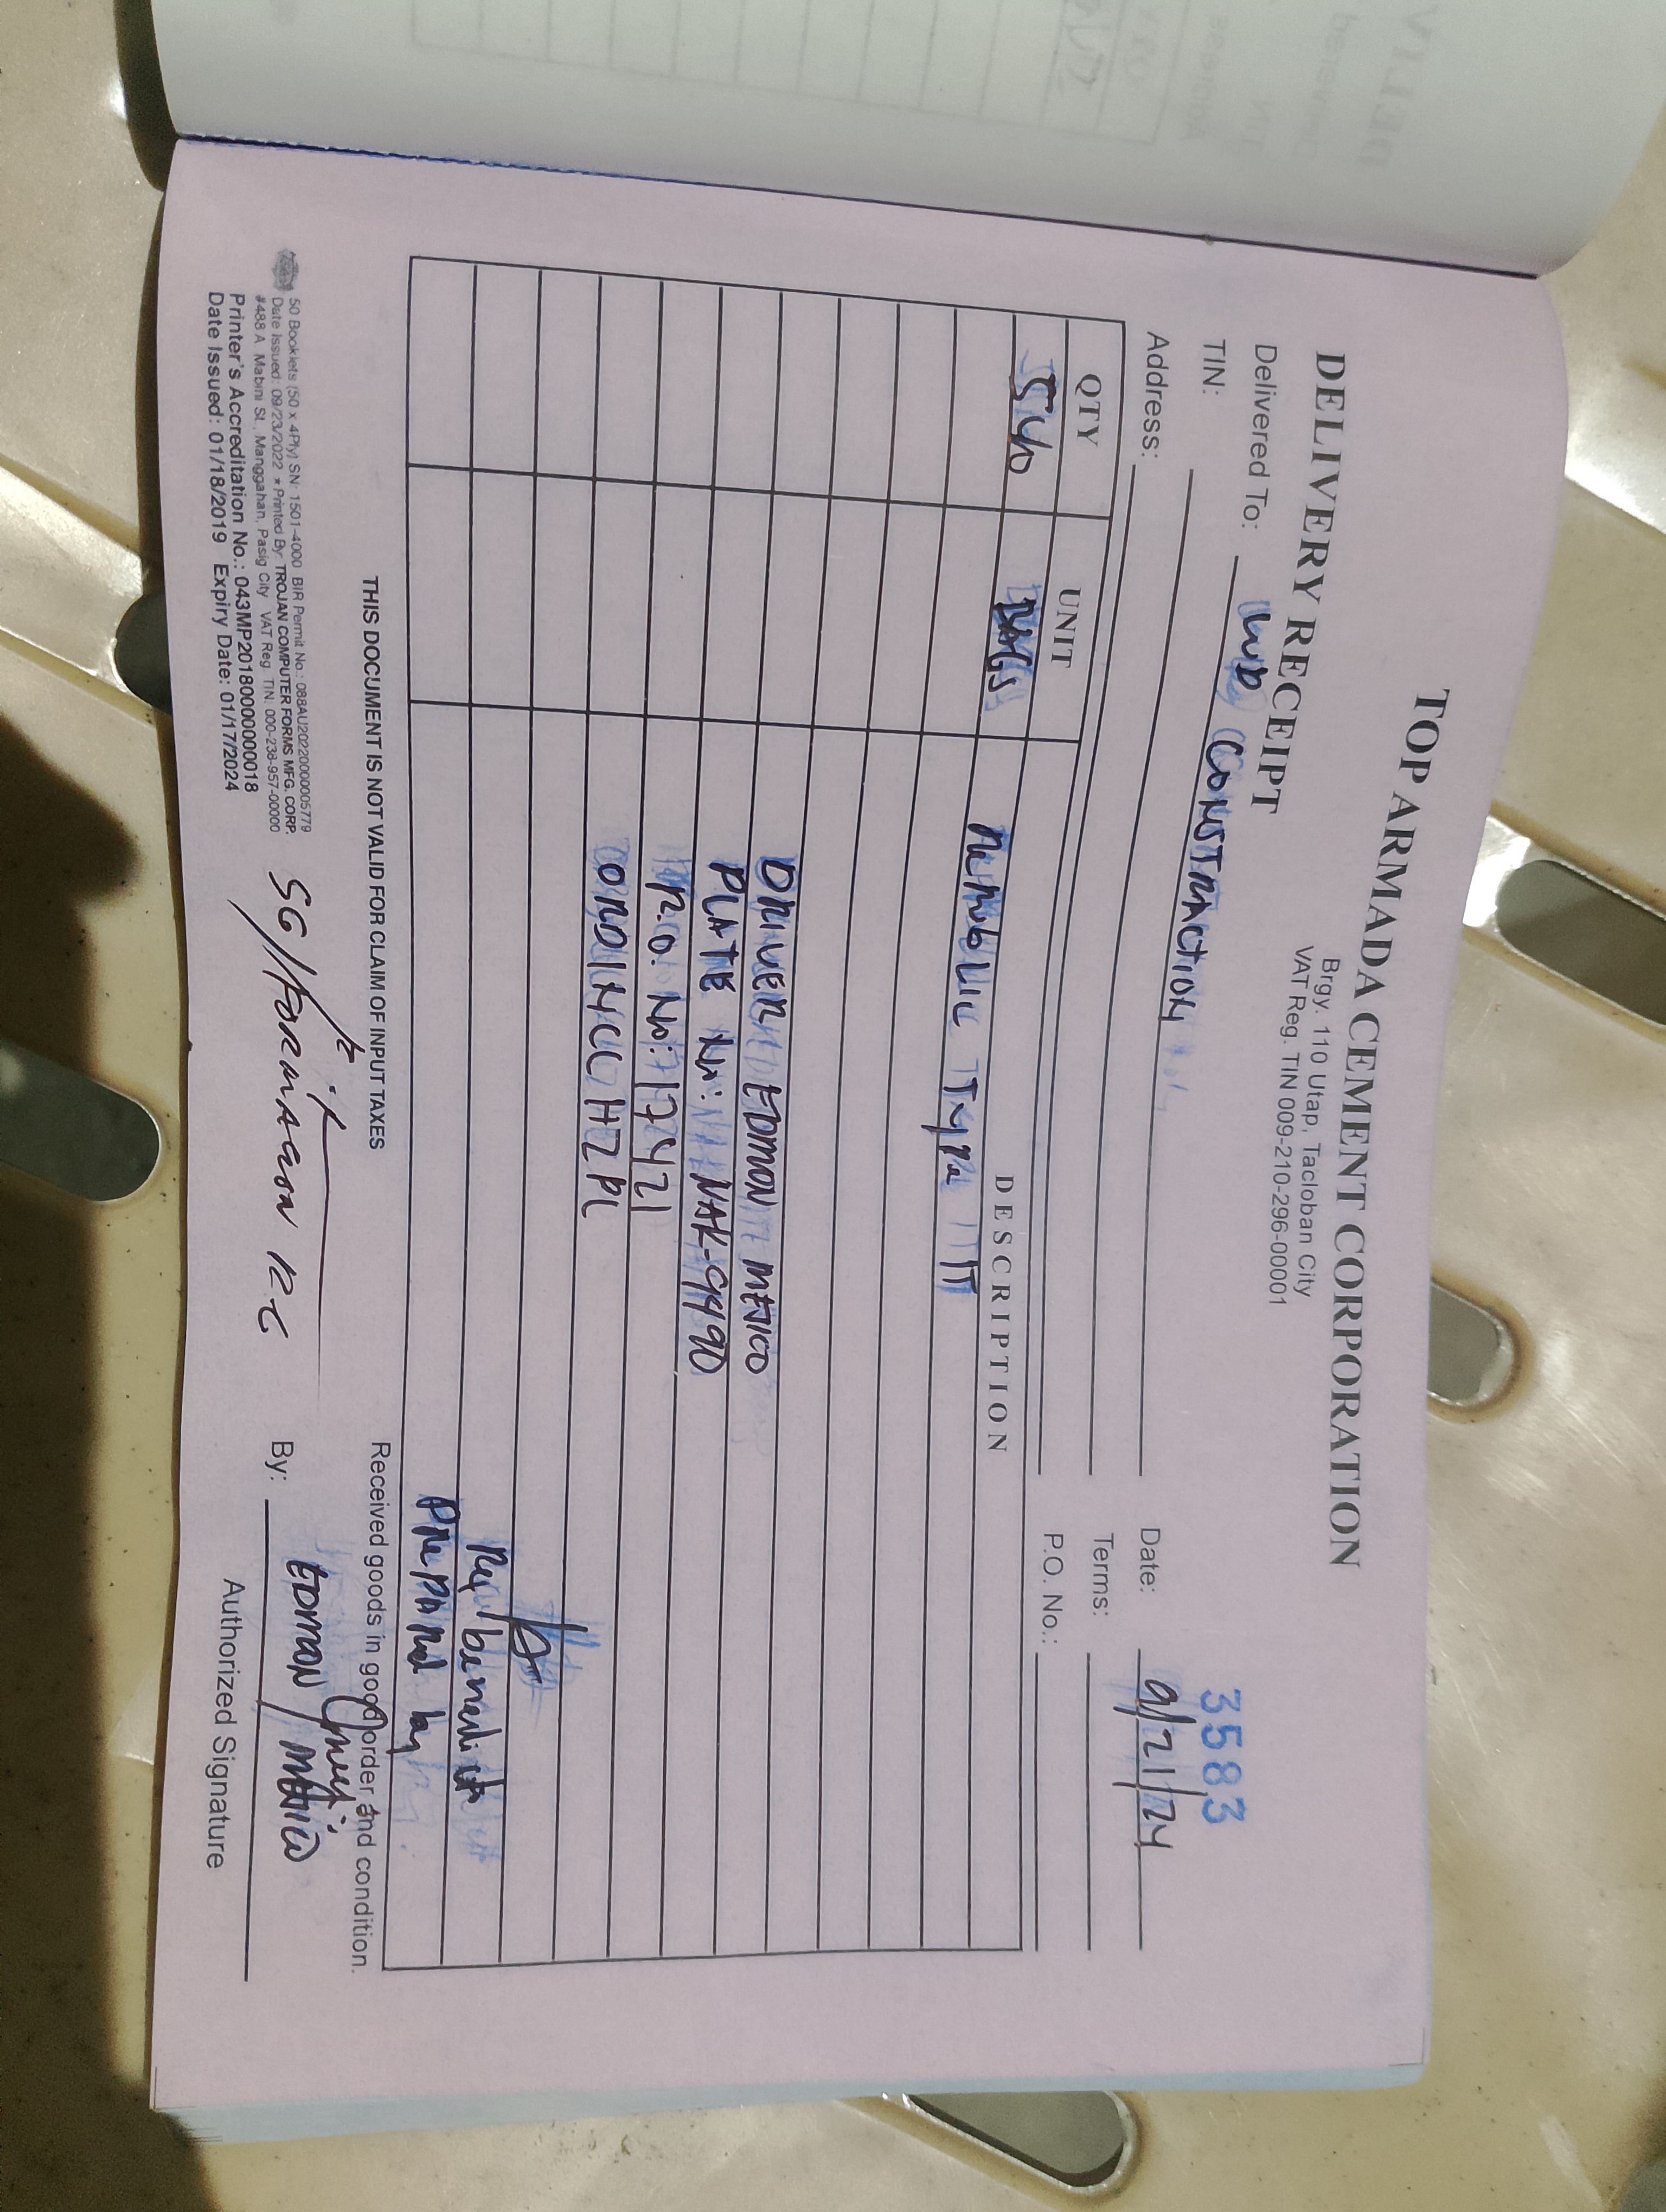 TOP ARMADA CEMENT CORPORATION
Brgy. 110 Utap, Tacloban City
VAT Reg. TIN 009-210-296-00001
DELIVERY RECEIPT
3583
Delivered To: LWD CONSTRACTION
Date: 9/21/24
TIN:
Terms:
Address:
P.O. No.:
QTY UNIT DESCRIPTION
540 BAGS Republic Type 1T
DRIVER EDMON MEJICO
PLATE No: NAK-9490
R.O. No: 17421
Rey benedict
Prepared by
THIS DOCUMENT IS NOT VALID FOR CLAIM OF INPUT TAXES
Received goods in good order and condition.
50 Booklets (50 x 4Ply) SN: 1501-4000 BIR Permit No.: 088AU20220000005779
Date Issued: 09/23/2022 * Printed By: TROJAN COMPUTER FORMS MFG. CORP.
#488 A. Mabini St., Manggahan, Pasig City VAT Reg. TIN: 000-238-957-00000
Printer's Accreditation No.: 043MP20180000000018
Date Issued: 01/18/2019 Expiry Date: 01/17/2024
By: EDMON MEJICO
Authorized Signature